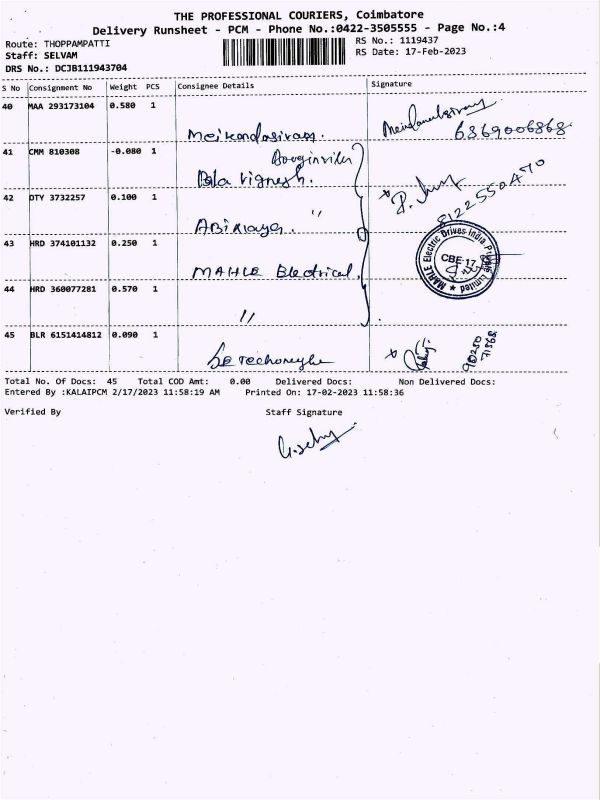 THE PROFESSIONAL COURIERS, Coimbatore
Delivery Runsheet - PCM - Phone No.:0422-3505555 - Page No.:4
Route: THOPPAMPATTI
RS No.: 1119437
Staff: SELVAM
RS Date: 17-Feb-2023
DRS No.: DCJB111943704
S No Consignment No Weight PCS Consignee Details Signature
40 MAA 293173104 0.580 1
Meikandasivam.
6369006868
41 CMM 810308 -0.080 1
Bala Vignesh.
42 DTY 3732257 0.100 1
"
8122550470
43 HRD 374101132 0.250 1
MAHLE Electrical
MAHLE Electric Drives India Private Limited
CBE-17
44 HRD 360077281 0.570 1
"
45 BLR 6151414812 0.090 1
Total No. Of Docs: 45 Total COD Amt: 0.00 Delivered Docs: Non Delivered Docs:
Entered By :KALAIPCM 2/17/2023 11:58:19 AM Printed On: 17-02-2023 11:58:36
Verified By Staff Signature